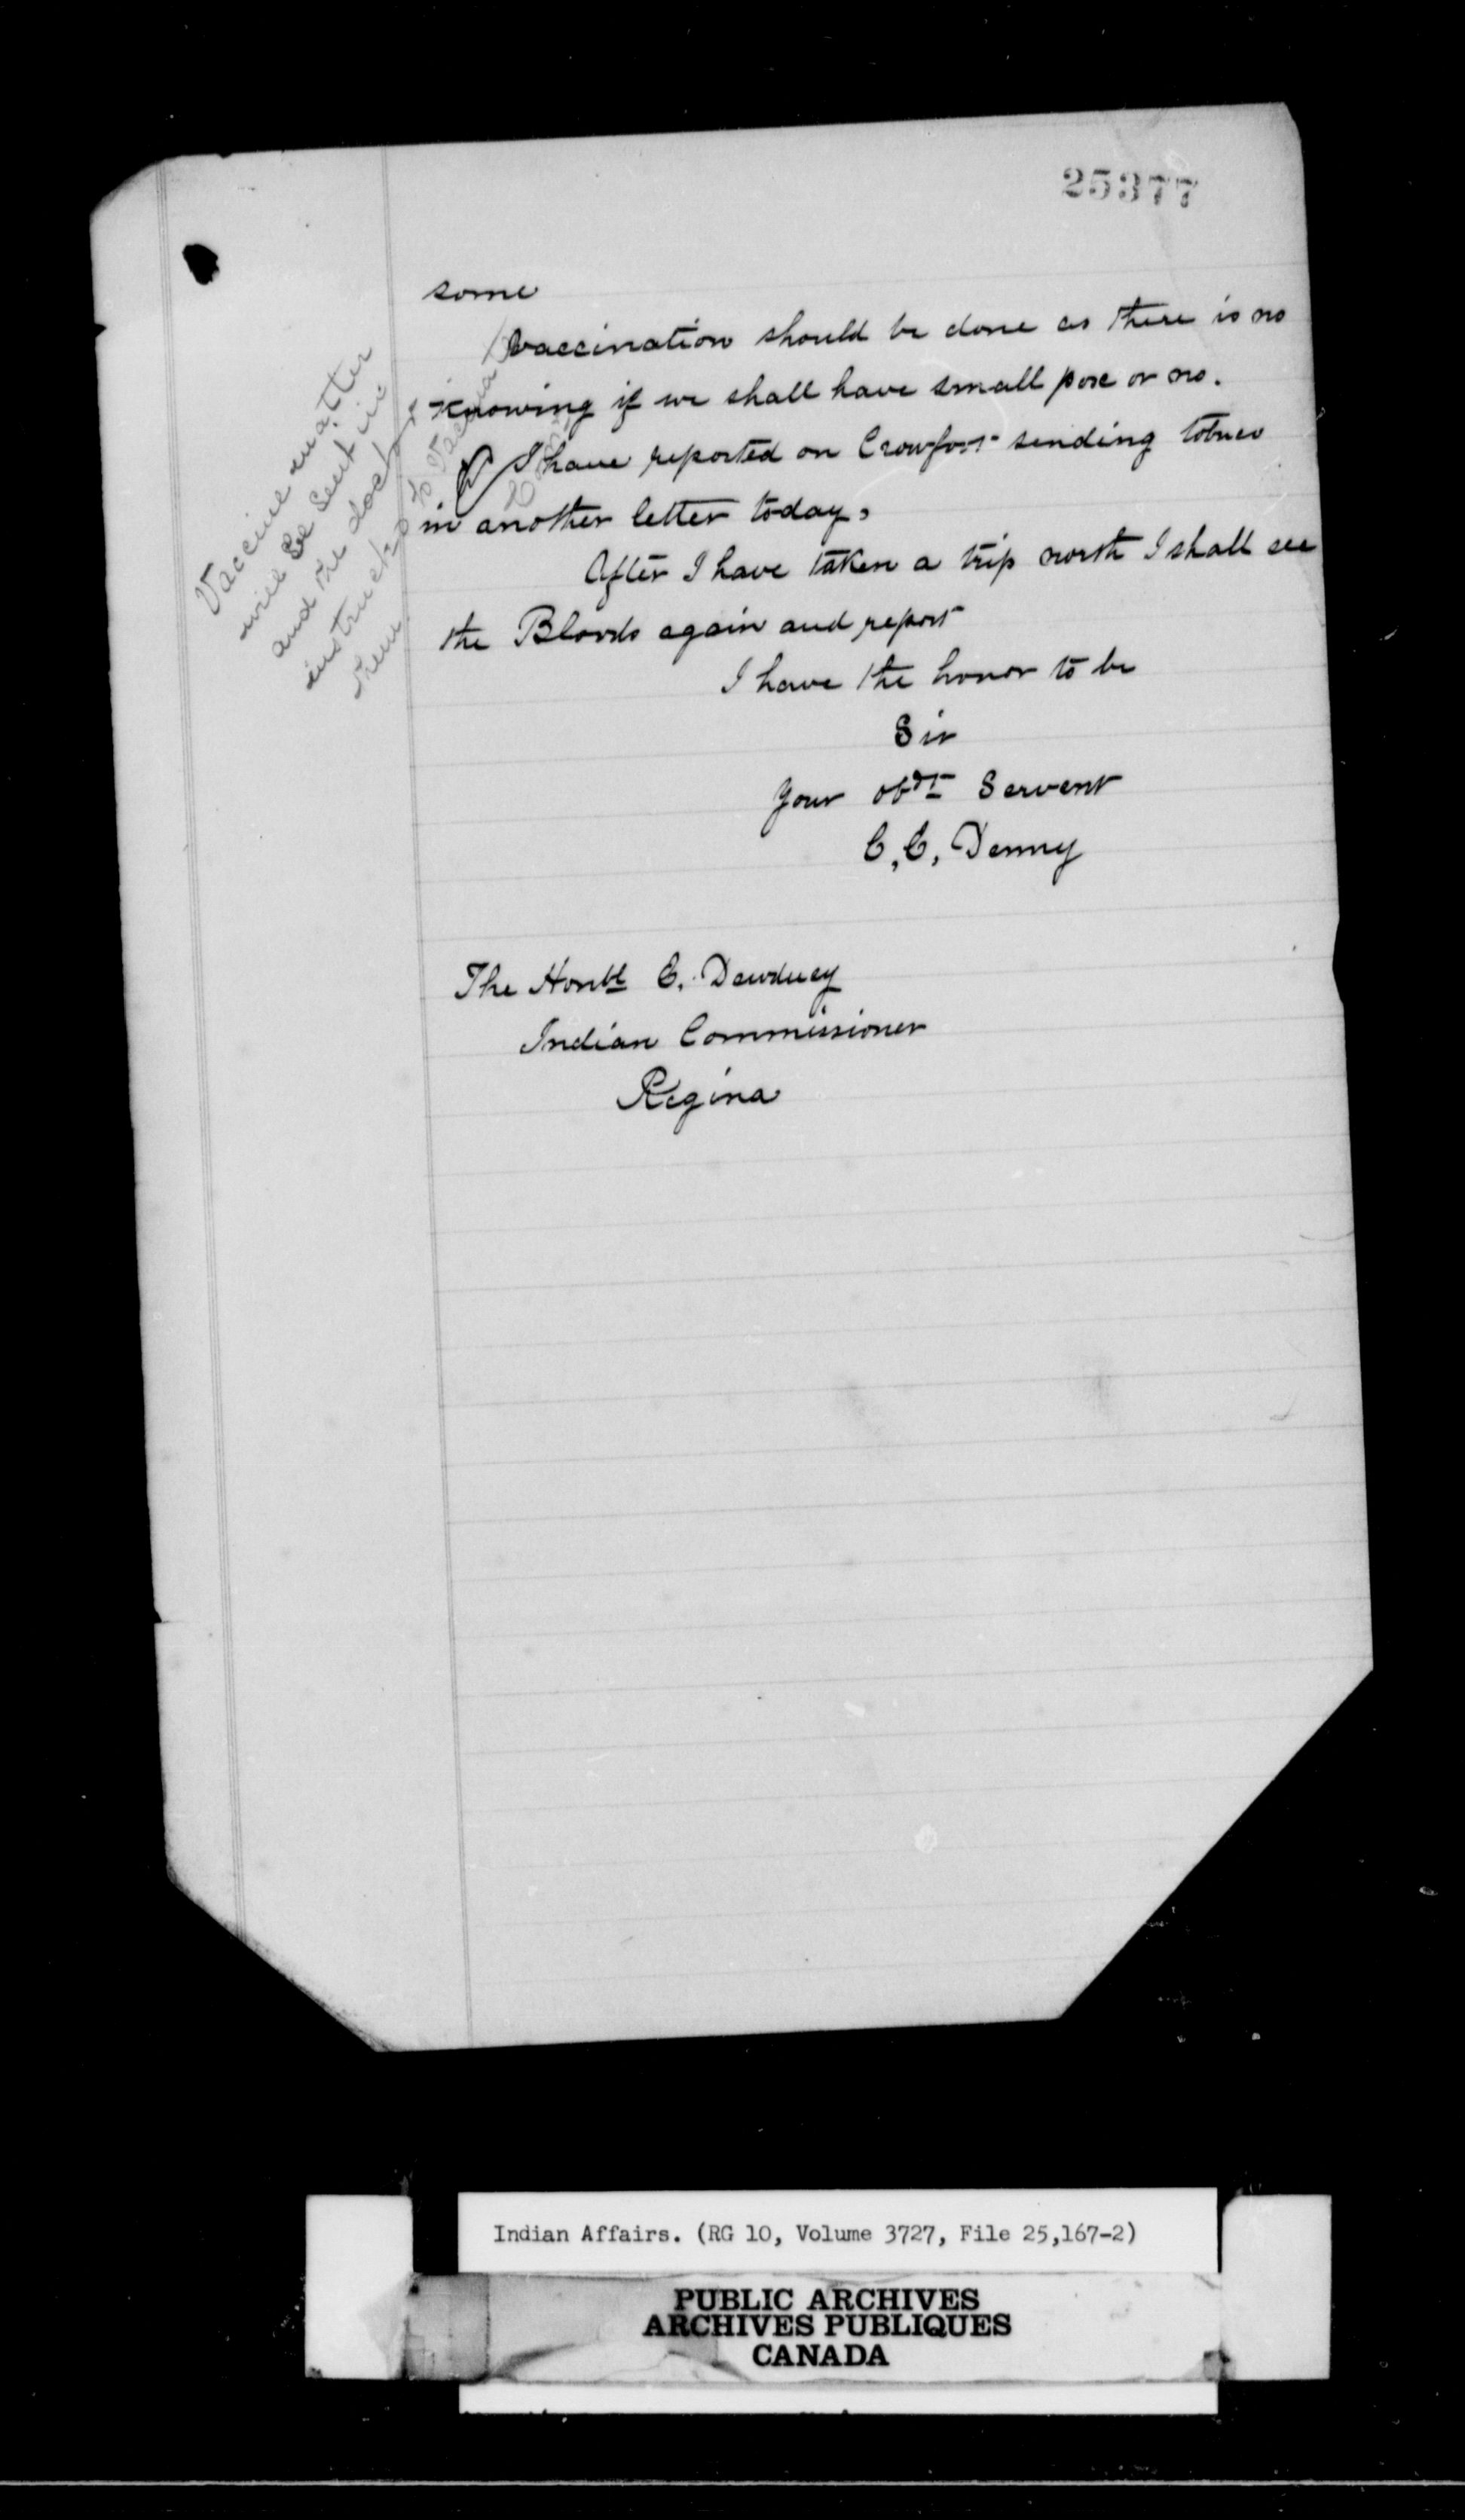 25377
some
vaccination should be done as there is no
Knowing if we shall have small pox or no.
I have reported on Crowfoot sending tobaco
in another letter today.
After I have taken a trip north I shall see
the Bloods again and report
I have the honor to be
Sir
Your obdt Servent
C. E. Denny
The Honbl E. Dewdney
Indian Commissioner
Regina
Vaccine matter
will be sent
and the doctor
instructed to Vaccinate
them
Indian Affairs. (RG 10, Volume 3727, File 25,167-2)
PUBLIC ARCHIVES
ARCHIVES PUBLIQUES
CANADA